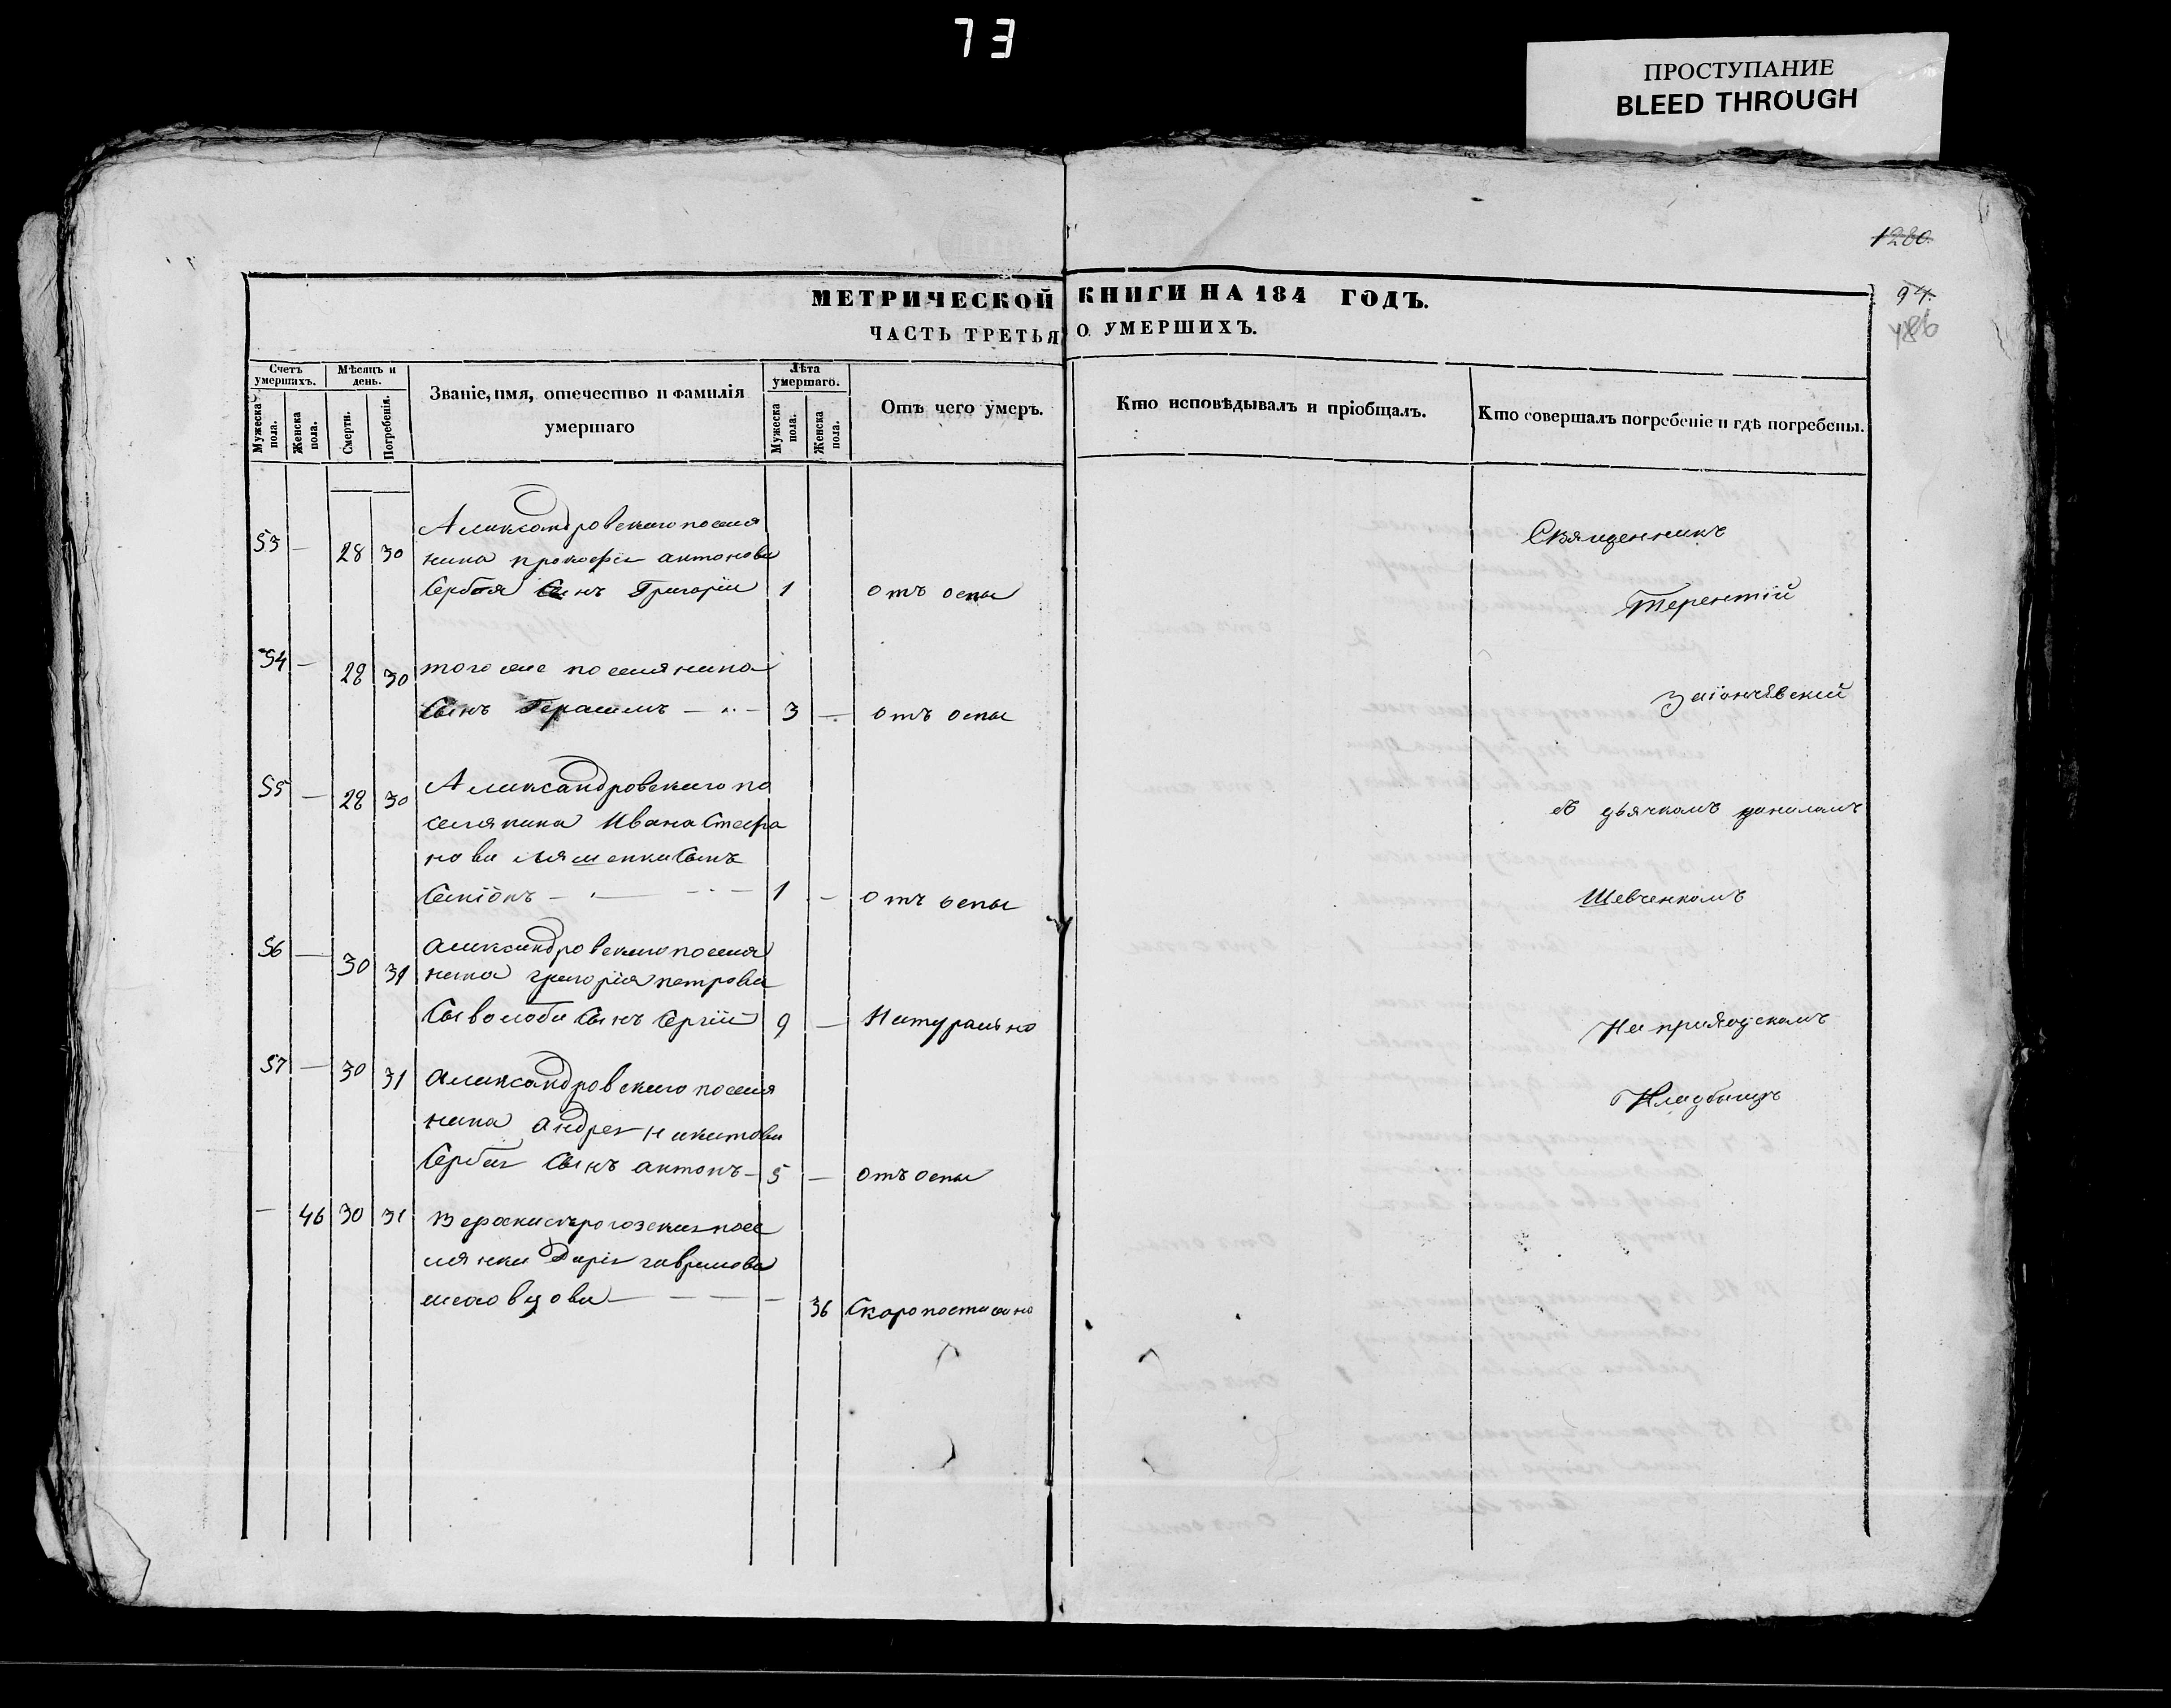 73
ПРОСТУПАНИЕ
BLEED THROUGH
1280.
94.
486
МЕТРИЧЕСКОЙ КНИГИ НА 184 ГОДЪ.
ЧАСТЬ ТРЕТЬЯ О УМЕРШИХЪ.
Счетъ умершихъ.
Мѣсяцъ и день.
Званіе, имя, отечество и фамилія умершаго
Лѣта умершаго.
Отъ чего умеръ.
Кто исповѣдывалъ и пріобщалъ.
Кто совершалъ погребеніе и гдѣ погребены.
Мужеска пола.
Женска пола.
Смерти.
Погребенія.
Мужеска пола.
Женска пола.
Александровскаго поселя
53 — 28 30 нина прокофія антонова
Сербая Сынъ Григорій 1 отъ оспы
54 — 28 30 того же поселянина
Сынъ Герасимъ — 3 — отъ оспы
55 — 28 30 Александровскаго по
селянина Ивана Стефа
нова Ляшенки Сынъ
1 — отъ оспы
56 — 30 31 Александровскаго поселя
нина григорія петрова
Сынъ Сергій 9 — Натурально
57 — 30 31 Александровскаго поселя
нина андрея никитова
Сербая Сынъ антонъ — 5 — отъ оспы
— 46 30 31 посе
лянки Дарія гаврилова
36 Скоропостижно
Священникъ
Терентій
съ дьячкомъ даниломъ
Шевченкомъ
На приходскомъ
Кладбищѣ